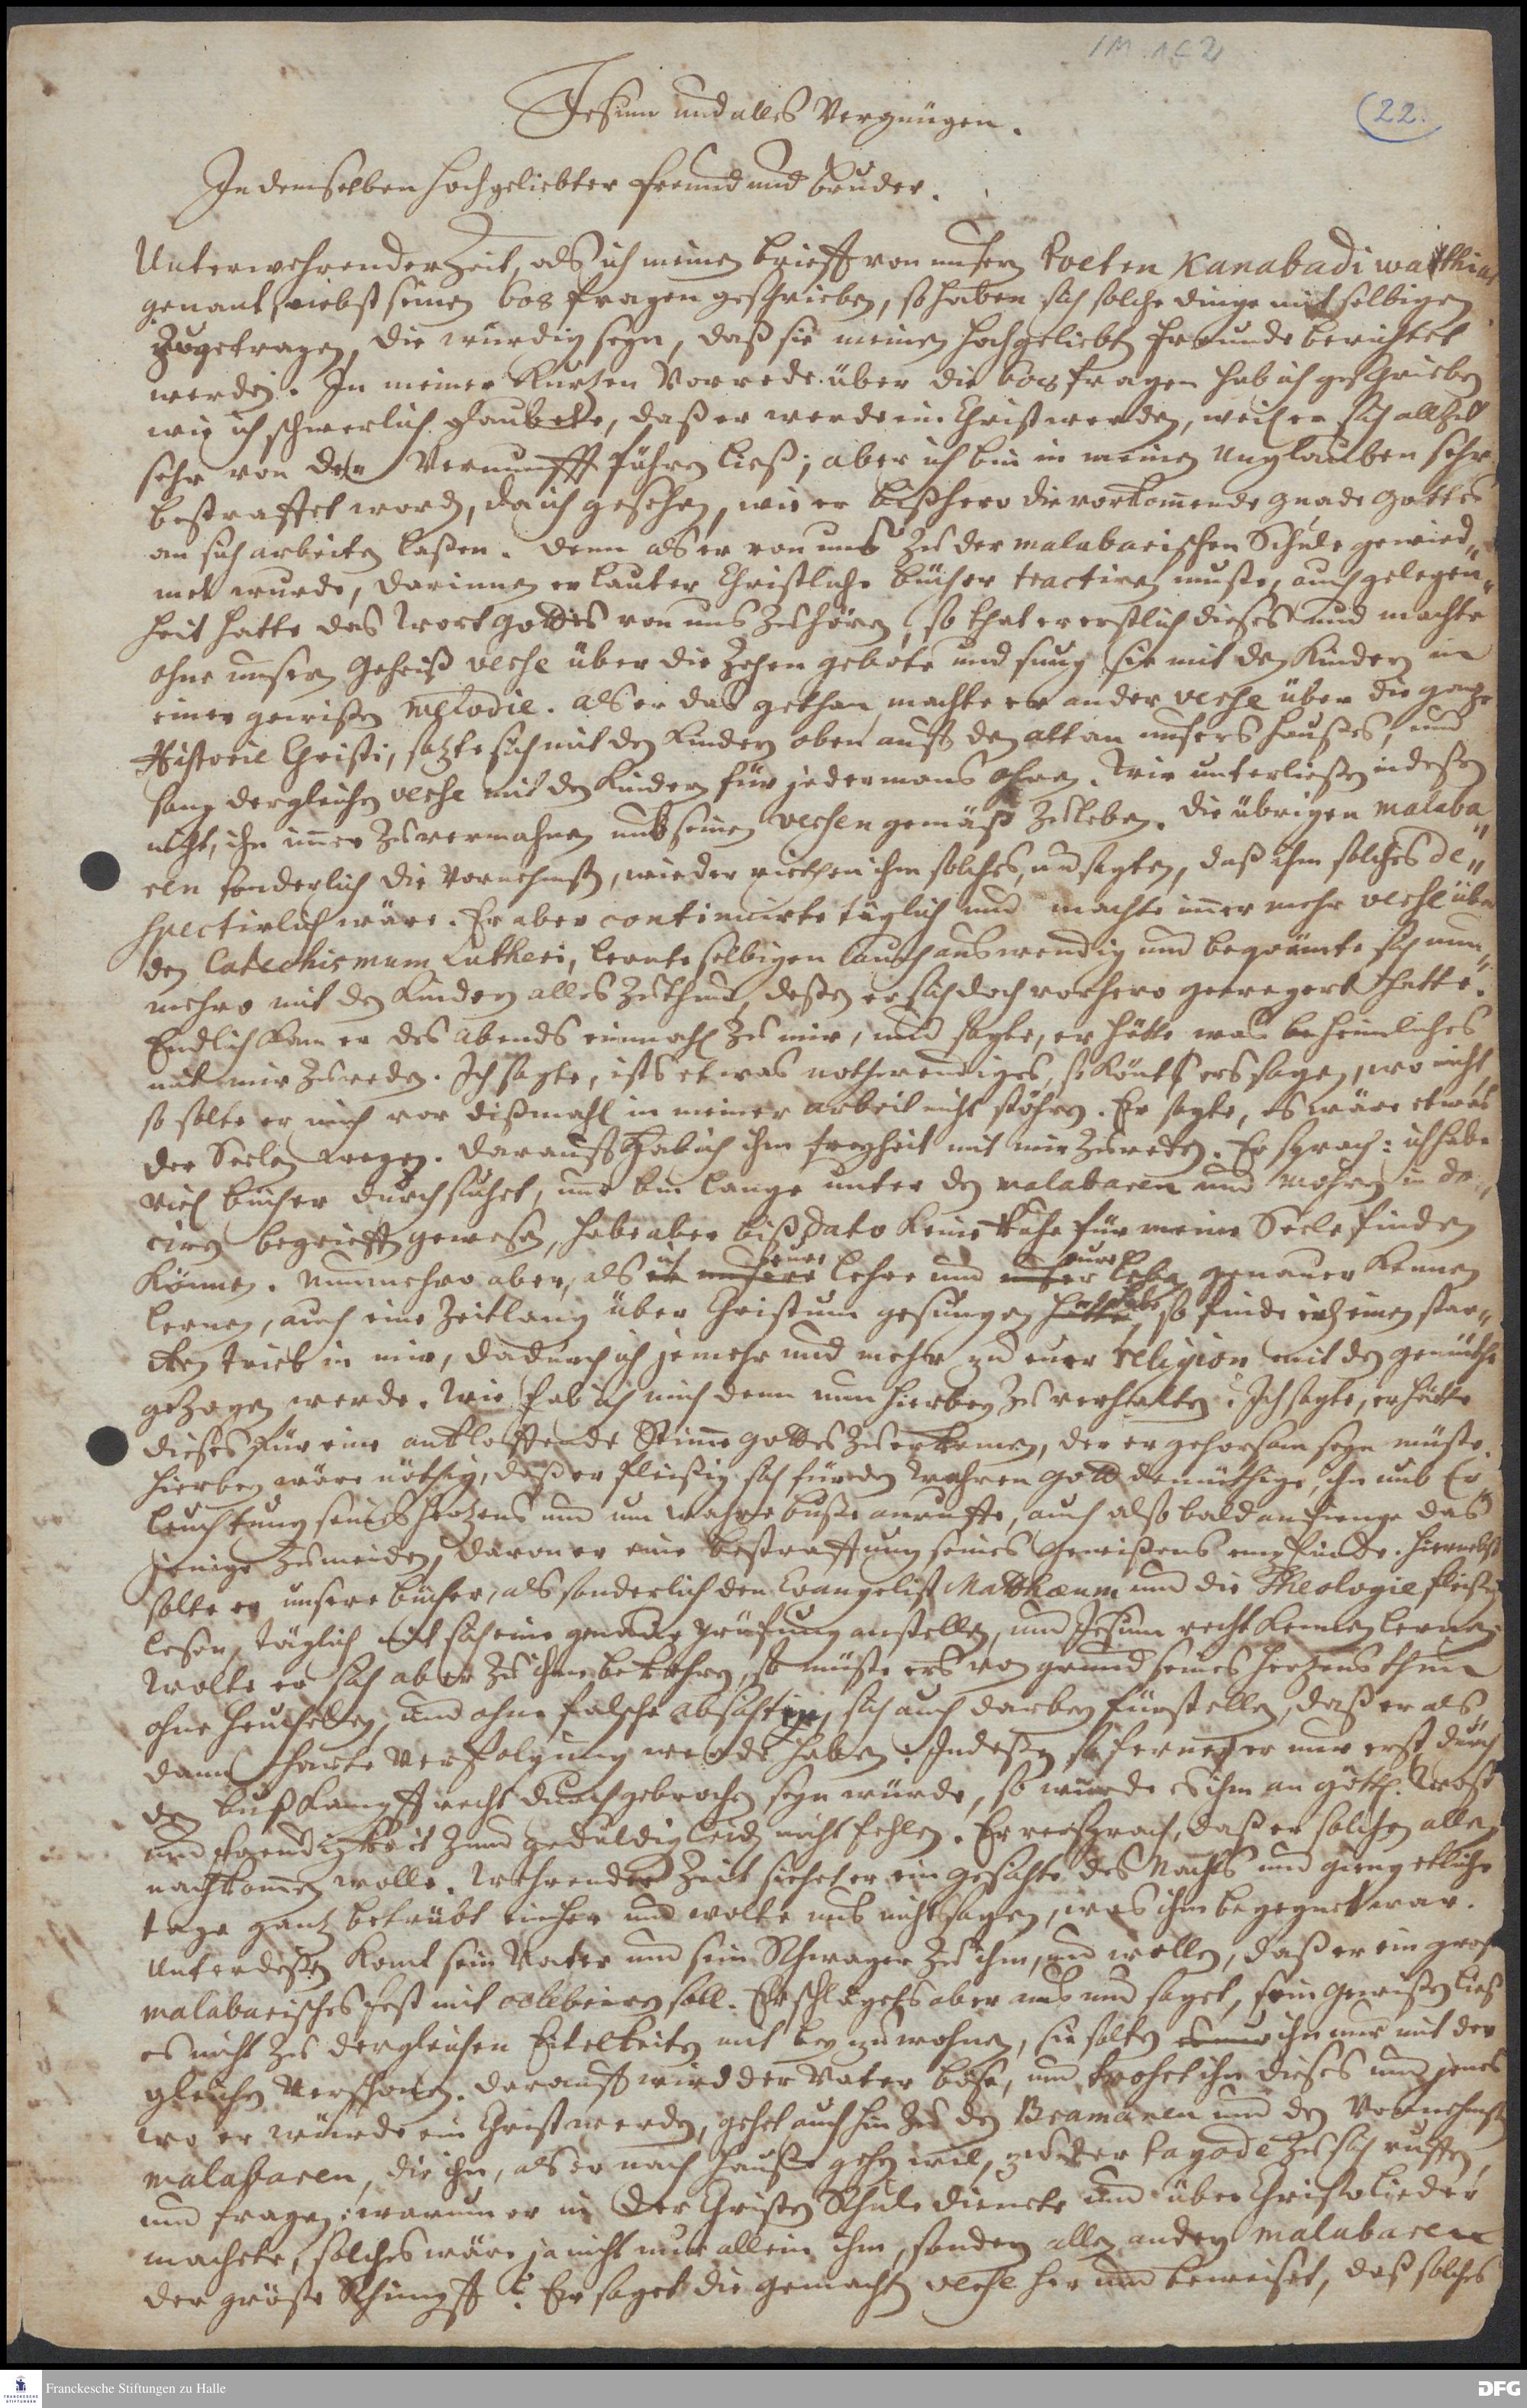 1 M. 1 C 2
(22.
Jesum und alles Vergnügen.
In demselben hochgeliebter Freund und Bruder.
Unterwehrender Zeit, als ich meinen Brieff von unsern Poeten Kanabadi wathiar
genant, nebst seinen 608 fragen geschrieben, so haben sich solche dinge mit selbigen
zugetragen, die würdig seyn, daß sie meinen hochgeliebt. Freunde berichtet
werden. In meiner Kurtzen Vorrede über die 608 fragen hab ich geschrieben
wie ich schwerlich glaubete, daß er werde ein Christ werden, weil er sich allzeit
sehr von der Vernunfft führen ließ; aber ich bin in meinen Unglauben sehr
bestraffet worden, da ich gesehen, wie er bißhero die vorkom̄ende gnade Gottes
an sich arbeiten laßen. Denn als er von uns zu der malabarischen Schule gewied„
met wurde, darinnen er lauter Christliche bücher tractiren muste, auch gelegen„
heit hatte das Wort Gottes von uns zu hören, so that er erstlich dieses und machte
ohne unsern Geheiß verse über die Zehen gebote und sung sie mit den Kindern in
einer gewißen melodie. Als er das gethan, machte er ander verse über die gantze
Historie Christi, setzte sich mit den Kindern oben auff den altan unsers Haußes, und
sang dergleichen verse mit den Kindern für jedermans ohren. Wir unterließen indeßen
nicht, ihn im̄er zu vermahnen nub seinen versen gemäß zu leben. Die übrigen malaba„
ren sonderlich die Vornehmsten, wiederriethen ihm solches, und sagten, daß ihm solches de„
spectirlich wäre. Er aber continuirte täglich und machte im̄er mehr verse über
den Catechismum Lutheri, lernte selbigen auch auswendig und bequemte sich nun„
mehro mit den Kindern alles zu thun, deßen er sich doch vorhero gewegert hatte.
Endlich kam er des abends einmahl zu mir, und sagte, er hätte was beheimliches
mit mir zu reden. Ich sagte, ists etwas nothwendiges, so könte ers sagen, wo nicht,
so solte er mich vor dißmahl in meiner arbeit nicht stöhren. Er sagte, es wäre etwas
der Seelen wegen. Darauff gab ich ihm freyheit mit mir zu reden. Er sprach: ich habe
viel bücher durchsuchet, und bin lange unter den malabaren und Mohren in do„
ciren begrieffen gewesen, habe aber biß dato keine Ruhe für meine Seele finden
können. Nunmehro aber, als ich eure lehre und euer leben genauer kennen
lernen, auch eine Zeitlang über Christum gesungen habe, so finde ich einen star„
cken trieb in mir, dadurch ich jemehr und mehr zu eurer religion mit den gemüthe
gezogen werde. Wie hab ich mich denn nun hierbey zu verhalten? Ich sagte, er hätte
dieses für eine anklopffende Stim̄e Gottes zu erkennen, der er gehorsam seyn müste.
Hierbey wäre nöthig, daß er fleißig sich für den wahren Gott demüthige, ihn umb Er„
leuchtung seines Hertzens und um wahre buße anruffe, auch also bald anfienge das
jenige zu meiden, davon er eine bestraffung seines Gewißens empfinde. Hiernebst
solte er unsere bücher, als sonderlich den Evangelist Matthaeum und die Theologie fleißig
lesen, täglich mit sich eine genaue prüfung anstellen, und Jesum recht kennen lernen.
Wolte er sich aber zu ihm bekehren, so müste ers von grund seines Hertzens thun
ohne heucheley, und ohne falsche absichten, sich auch darbey fürstellen, daß er als
dann harte Verfolgung werde haben. Indeßen so ferne er nur erst durch
den bußkampff recht durchgebrochen seyn würde, so würde es ihm an göttl. Trost
und freudigkeit zum geduldigen leiden nicht fehlen. Er versprach, daß er solchen allen
nachkom̄en wolle. Wehrender Zeit siehet er ein gesichte des Nachts und gieng etliche
tage gantz betrübt einher und wolte uns nicht sagen, was ihm begegnet war.
Unterdeßen komt sein Vater und sein Schwager zu ihm, und wollen, daß er ein groß
malabarisches fest mit celebriren soll. Er schlägets aber aus und saget, sein gewißen ließ
es nicht zu dergleichen Eitelkeiten mit bey zu wohnen, sie solten ihn nur mit der
gleichen verschonen. Darauff wird der Vater böse, und drohet ihm dieses und jenes
wo er würde ein Christ werden, gehet auch hin zu den Bramanen und den Vornehmsten
malabaren, die ihn, als er nach Hause gehen wil, zu der Pagode zu sich ruffen,
und fragen: warum er in der Christen Schule dienete und über Christo lieder
machete, solches wäre ja nicht nur allein ihm, sondern allen andern malabaren
der gröste Schimpff? Er saget die gemachten verse her und beweiset, daß solches
Franckesche Stiftungen zu Halle
DFG